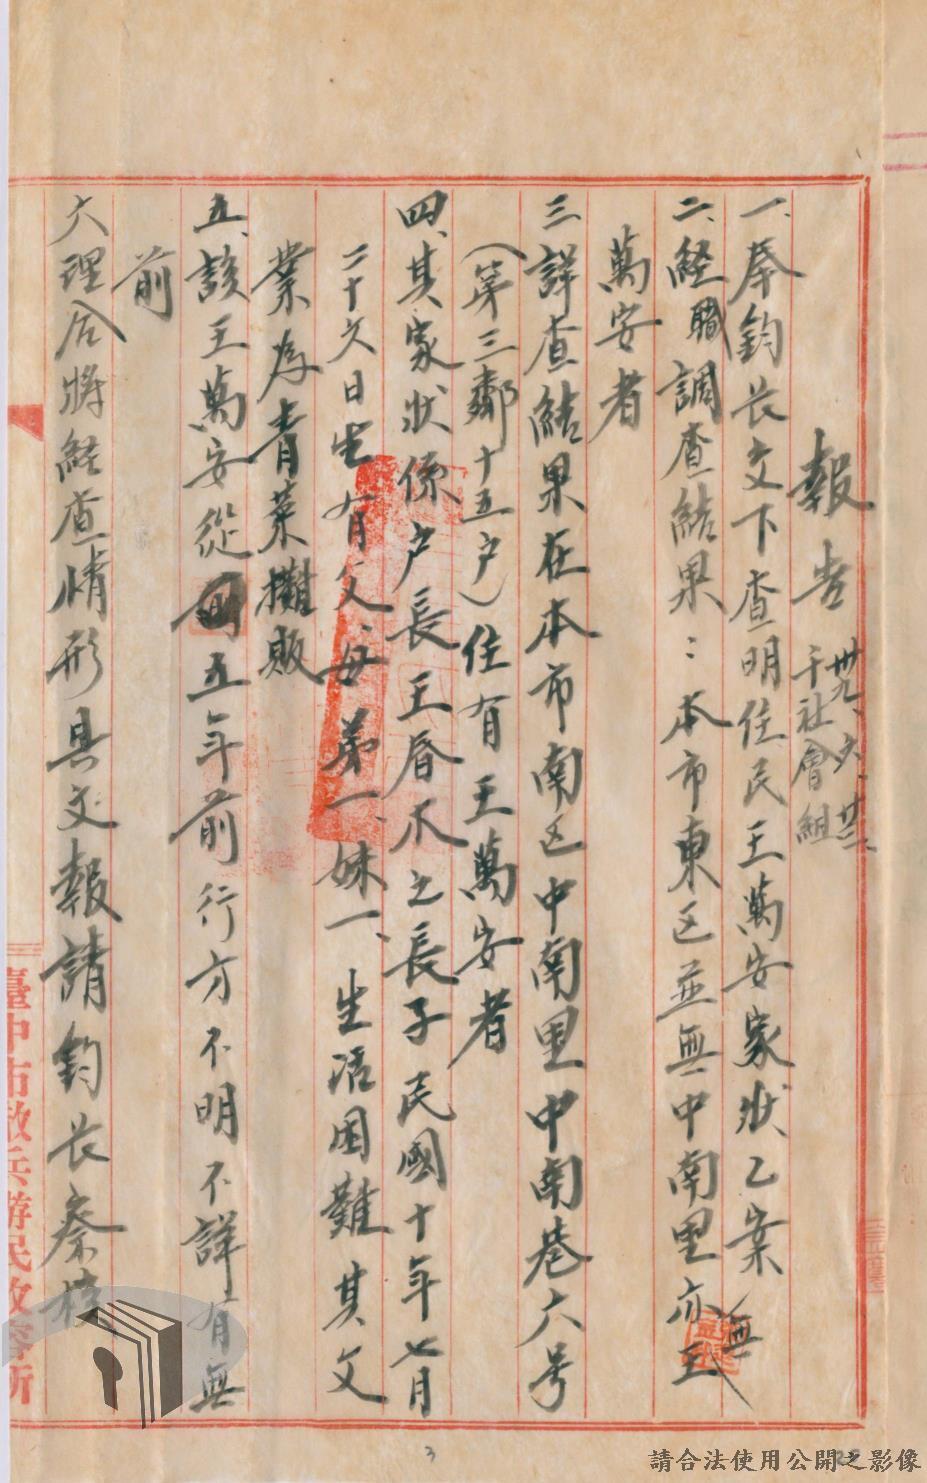 報告 卅九、六、廿二、
于社會組
一、奉鈞長文下查明住民王萬安家狀乙案
二、経職調查結果：本市東区並無中南里亦無王
萬安者
三、詳查結果在本市南区中南里中南巷六号
（第三鄰十五户）住有王萬安者
四、其家狀係户長王春木之長子民國十年七月
二十六日生有父、母弟一、妹一、生活困難其父
業為青菜攤販
五、該王萬安從五年前行方不明不詳有無
前
六理合將経查情形具文報請鈞長察核
臺中市散兵游民收容所
3
請合法使用公開之影像